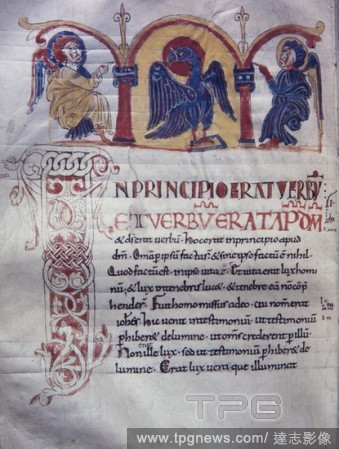 INPRINCIPIO ERAT VERBV
ET VERBV ERAT APD DM
& ds erat verbū. hoc erat in principio apud
dm̄. Omīa p ipsū facta s̄ & sine ipso factū ē nihil
Quod factū est in ipso uita ē. & uita erat lux homi
nū. & lux in tenebris luc& & tenebre eā nō cōp̄
hendert̄. Fuit homo missus a deo. cui nom̄ erat
iohs̄. hic uenit in testimoniū. ut testimoniū
phiber& de lumine. ut om̄s crederent p illū
Non erat ille lux. sed ut testimoniū phiber& de
lumine. Erat lux vera. que illuminat
TPG
www.tpgnews.com/ 達志影像